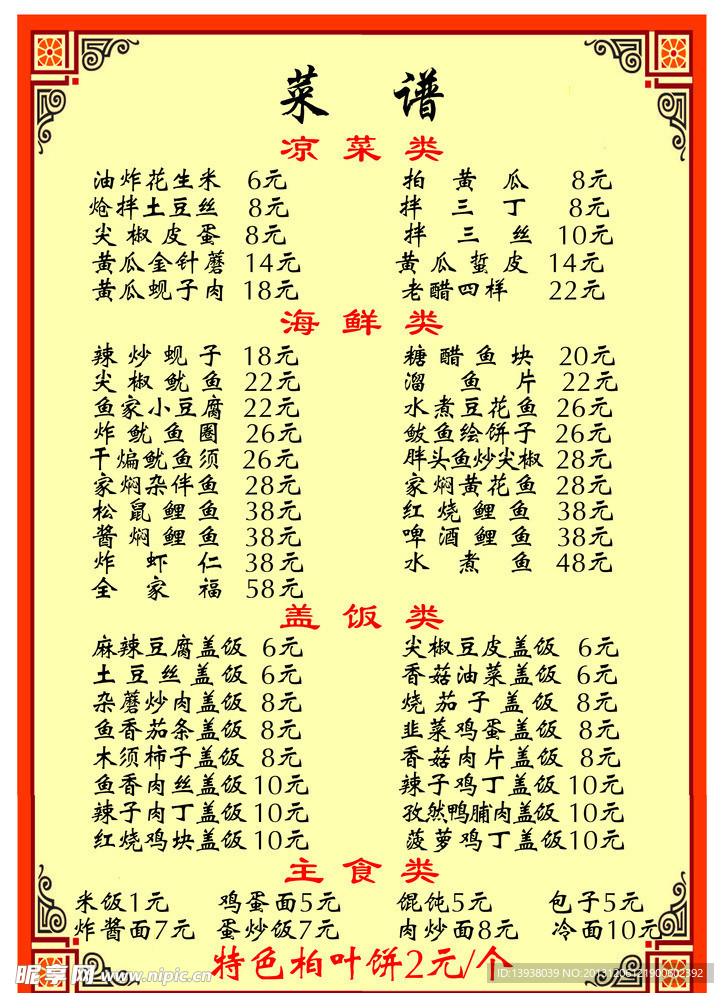 菜 谱
凉菜类
油炸花生米 6元 拍黄瓜 8元
炝拌土豆丝 8元 拌三丁 8元
尖椒皮蛋 8元 拌三丝 10元
黄瓜金针蘑 14元 黄瓜蜇皮 14元
黄瓜蚬子肉 18元 老醋四样 22元
海鲜类
辣炒蚬子 18元 糖醋鱼块 20元
尖椒鱿鱼 22元 溜鱼片 22元
鱼家小豆腐 22元 水煮豆花鱼 26元
炸鱿鱼圈 26元 鲅鱼绘饼子 26元
干煸鱿鱼须 26元 胖头鱼炒尖椒 28元
家焖杂伴鱼 28元 家焖黄花鱼 28元
松鼠鲤鱼 38元 红烧鲤鱼 38元
酱焖鲤鱼 38元 啤酒鲤鱼 38元
炸虾仁 38元 水煮鱼 48元
全家福 58元
盖饭类
麻辣豆腐盖饭 6元 尖椒豆皮盖饭 6元
土豆丝盖饭 6元 香菇油菜盖饭 6元
杂蘑炒肉盖饭 8元 烧茄子盖饭 8元
鱼香茄条盖饭 8元 韭菜鸡蛋盖饭 8元
木须柿子盖饭 8元 香菇肉片盖饭 8元
鱼香肉丝盖饭 10元 辣子鸡丁盖饭 10元
辣子肉丁盖饭 10元 孜然鸭脯肉盖饭 10元
红烧鸡块盖饭 10元 菠萝鸡丁盖饭 10元
主食类
米饭1元 鸡蛋面5元 馄饨5元 包子5元
炸酱面7元 蛋炒饭7元 肉炒面8元 冷面10元
特色柏叶饼2元/个
昵享网 www.nipic.cn
ID:13938039 NO:20131206121900602392